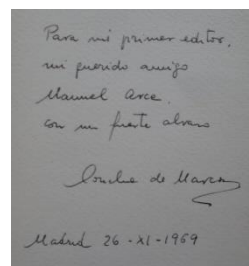 Para mi primer editor,
mi querido amigo
Manuel Arce,
con un fuerte abrazo
Concha de Marco
Madrid 26-XI-1969